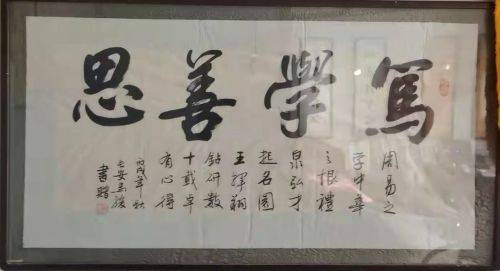 篤學善思
周易之
学中華
之根禮
泉弘才
起名園
王輝翔
鉆研數
十載卓
有心得
丙戌年秋
長安
書贈